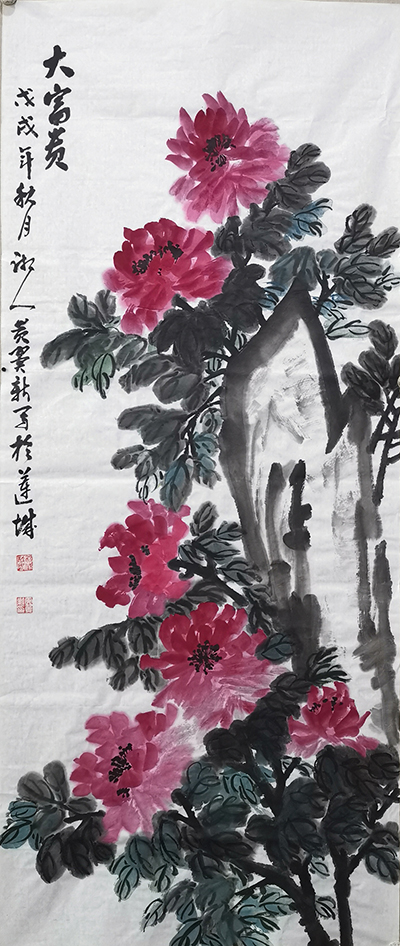 大富贵
戊戌年秋月湘人黄翼新写於莲城